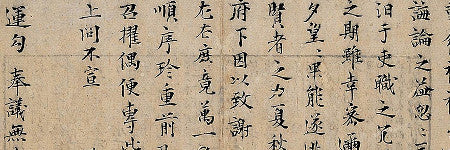 誨論之益忽忽
汨于吏職之冗
之期雖幸密邇
夕望〻果能遂逃
賢者之力夏秋
府下因以致謝
左右庶竟萬一
順序珍重前
召擢偶便專此
上問不宣
運勾 奉議無